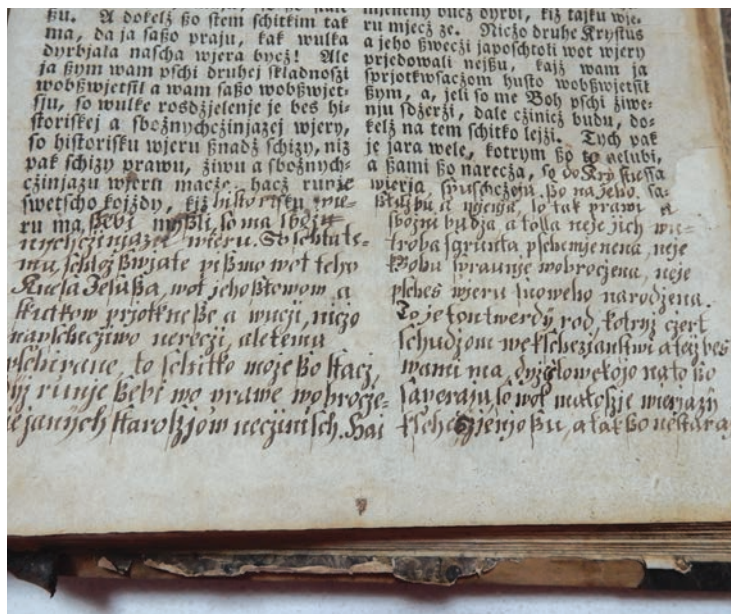 ßu. A dokelž ßo stem schitkim tak
ma, da ja saßo praju, kak wulka
dyrbjala nascha wjera bycž! Ale
ja ßym wam pschi druhej skladnoszi
wobßwjetsil a wam saßo wobßwjet-
sju, so wulke rosdzjelenje je bes hi-
storiskej a sbožnychcžinjazej wjery,
so historisku wjeru ßnadž schizy, niž
pak schizy prawu, žiwu a sbožnych-
cžinjazu wjeru macže. hacž runje
swetscho kojždy, kiž historisku wje-
ru ma, ßebi mysli, so ma sbožn
nychcžinjazei wieru. So schlate-
mu, schtož ßwjate pißmo wot teho
Knesa Jesußa, wot jeho ßtowow a
skutkow prjotkneße a wucji, niczo
napschecziwo nereczi, ale temu
pschirane, to schitko može ßo stacz,
runje ßebi wo prawe wobrocze-
janych staroszjow neczinisch. Hai
mjeneny bucž dyrbi, kiž tajku wje-
ru mjecž ze. Nicžo druhe Krystus
a jeho ßwecži japoschtoli wot wjery
prjedowali nejßu, kajž wam ja
sprjotkwsaczom husto wobßwjetsil
ßym, a, jeli so me Boh pschi žiwe-
nju sdžerži, dale cžinicž budu, do-
kelž na tem schitko leži. Tych pak
je jara wele, kotrym ßo to nelubi,
a ßami ßo narecža, so do Krystussa
wierja, spuschczeja ßo na jeho sa-
ßlužbu, a mjenja, so tak prawi a
sbožni budža, a tolla neje jich wu-
troba sgrunta pschemjenena, neje
k Bohu sprawnje wobroczena, neje
psches wjeru snoweho narodžena.
To je ton twerdy rod, kotryž czert
schudžom we kscheszjanstwi a tež bes
wami ma, dyž ßlowekojo na to ßo
saperaju, so wot małoszje wierjazy
kscheszjenjo ßu, a tak ßo nestaraj